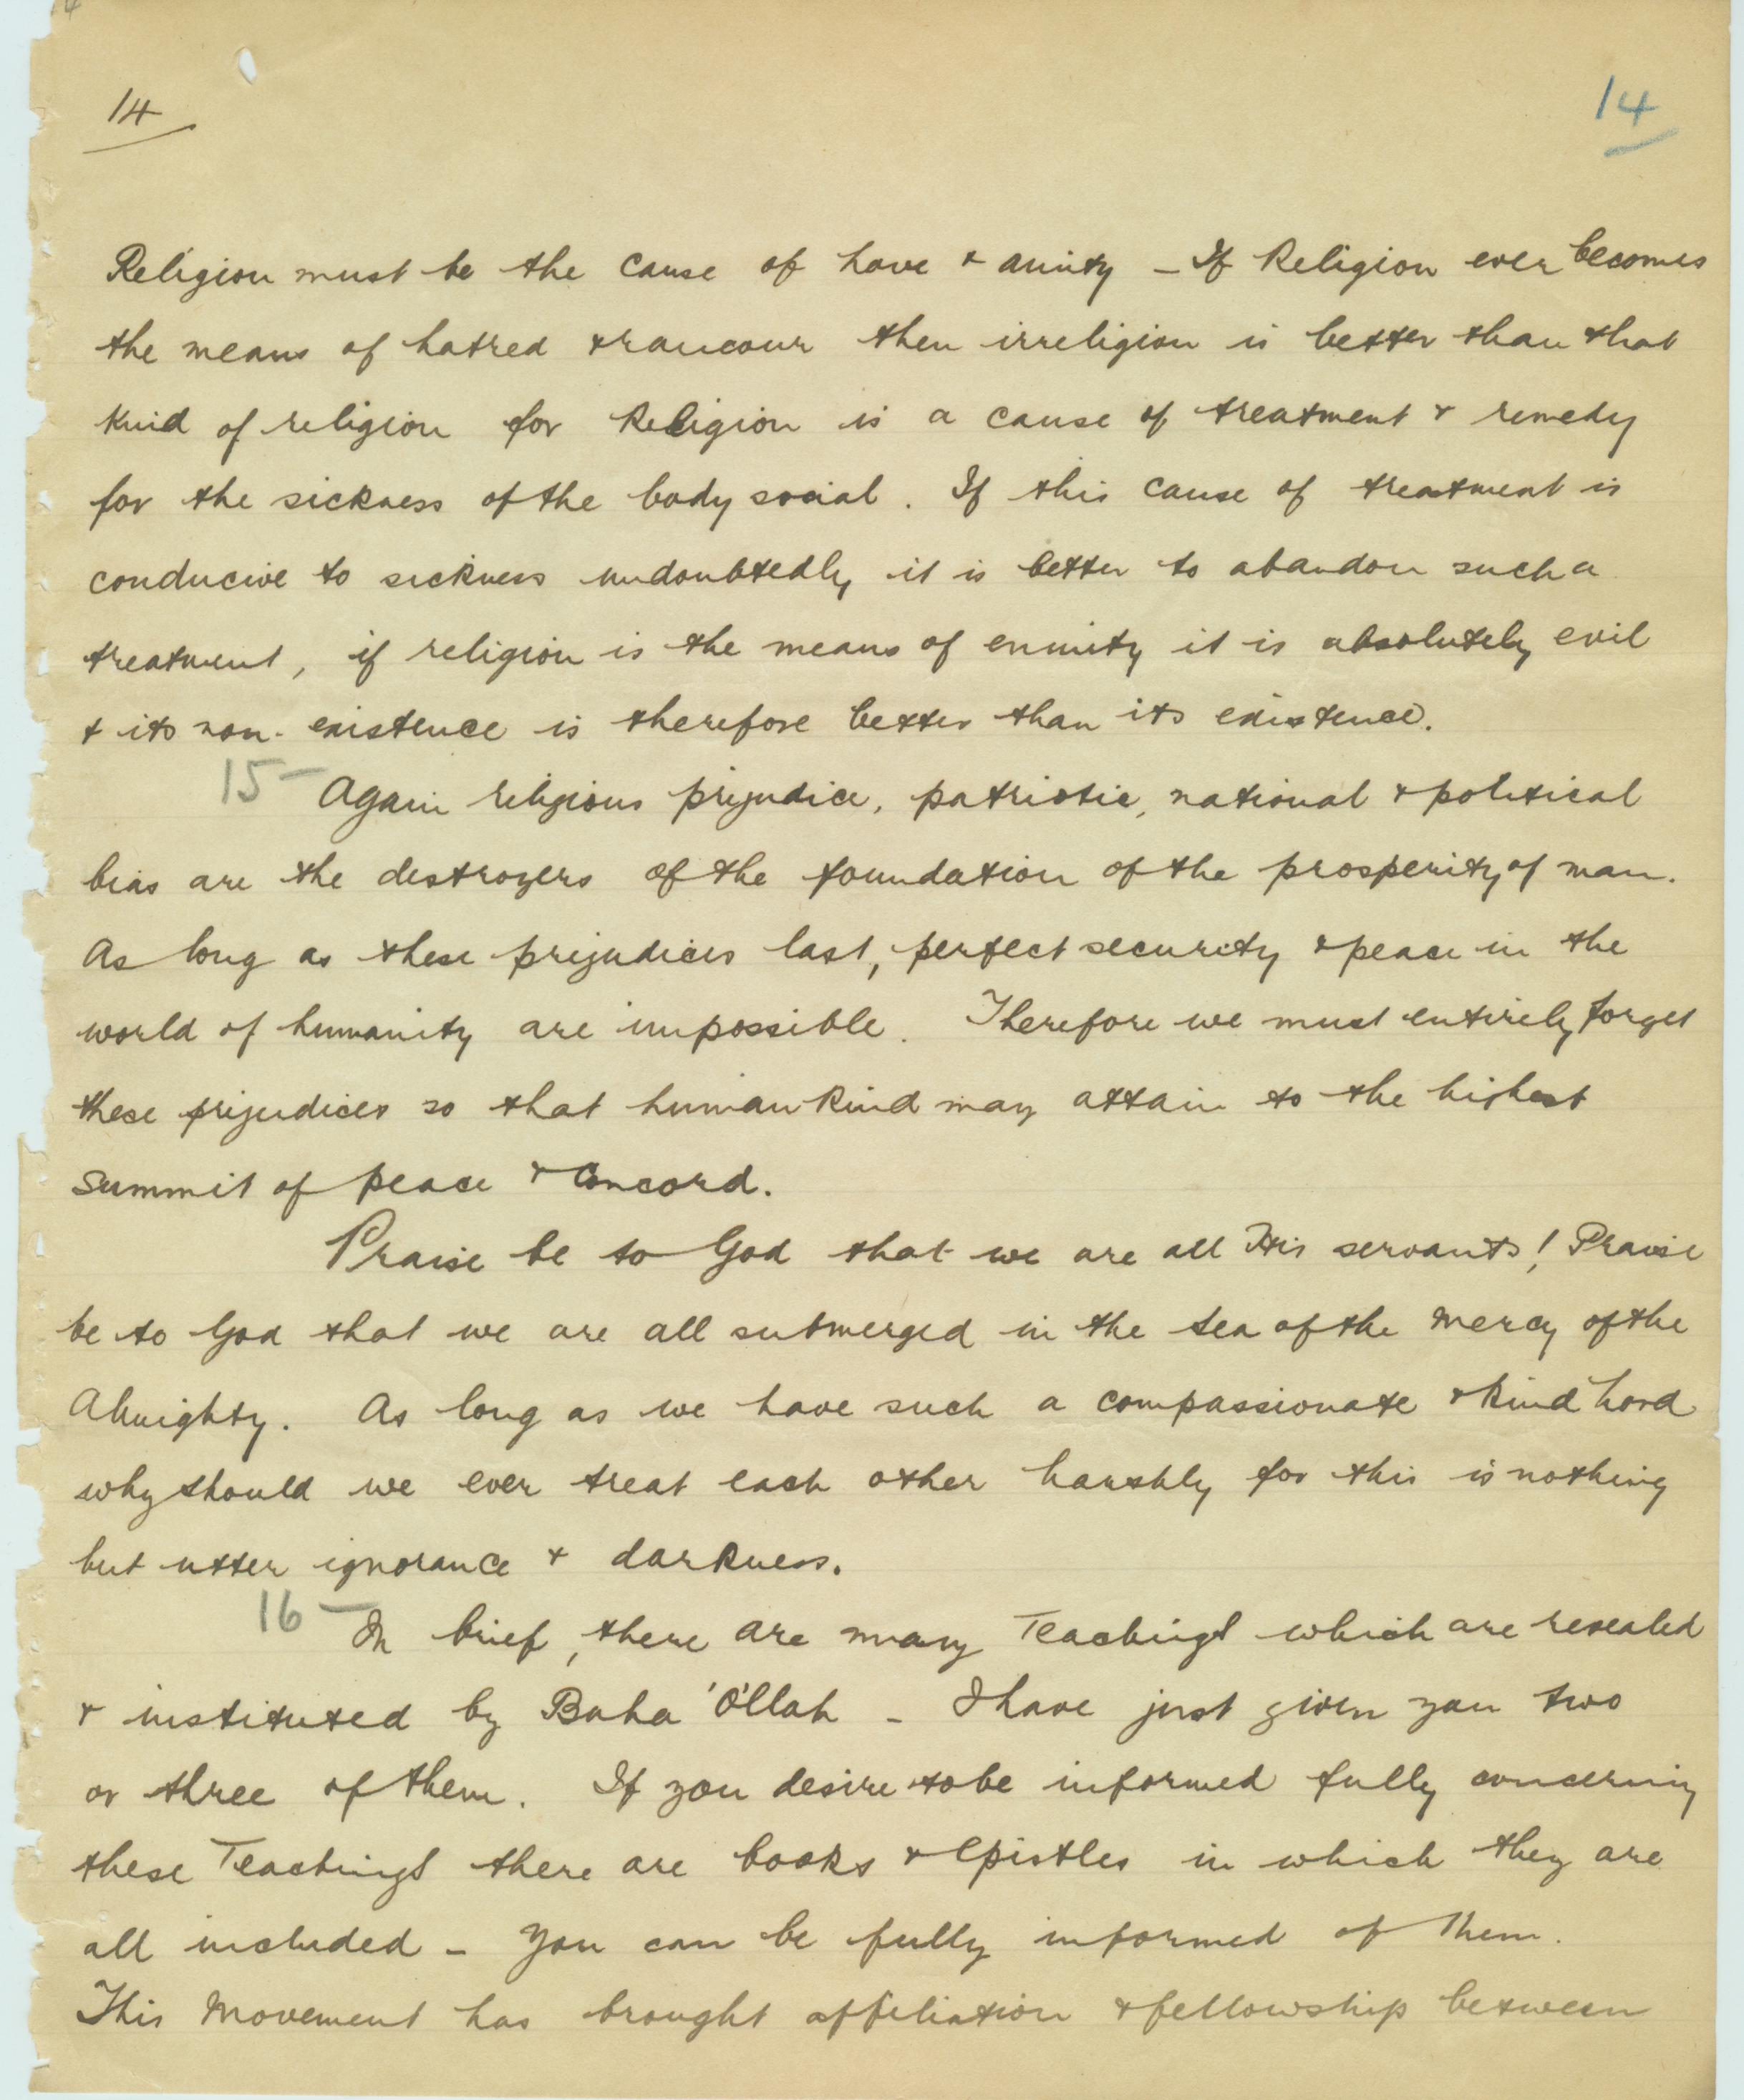 14
14
Religion must be the cause of Love & amity – If Religion ever becomes
the means of hatred & rancour then irreligion is better than that
kind of religion for Religion is a cause of treatment & remedy
for the sickness of the body social. If this cause of treatment is
conducive to sickness undoubtedly it is better to abandon such a
treatment, if religion is the means of enmity it is absolutely evil
& its non-existence is therefore better than its existence.
15 – Again religious prejudice, patriotic, national & political
bias are the destroyers of the foundation of the prosperity of man.
As long as these prejudices last, perfect security & peace in the
world of humanity are impossible. Therefore we must entirely forget
these prejudices so that human kind may attain to the highest
summit of peace & Concord.
Praise be to God that we are all His servants! Praise
be to God that we are all submerged in the Sea of the Mercy of the
Almighty. As long as we have such a compassionate & kind Lord
why should we ever treat each other harshly for this is nothing
but utter ignorance & darkness.
16 – In brief, there are many Teachings which are revealed
& instituted by Baha 'O'llah – I have just given you two
or three of them. If you desire to be informed fully concerning
these Teachings there are books & Epistles in which they are
all included – You can be fully informed of them.
This Movement has brought affiliation & fellowship between